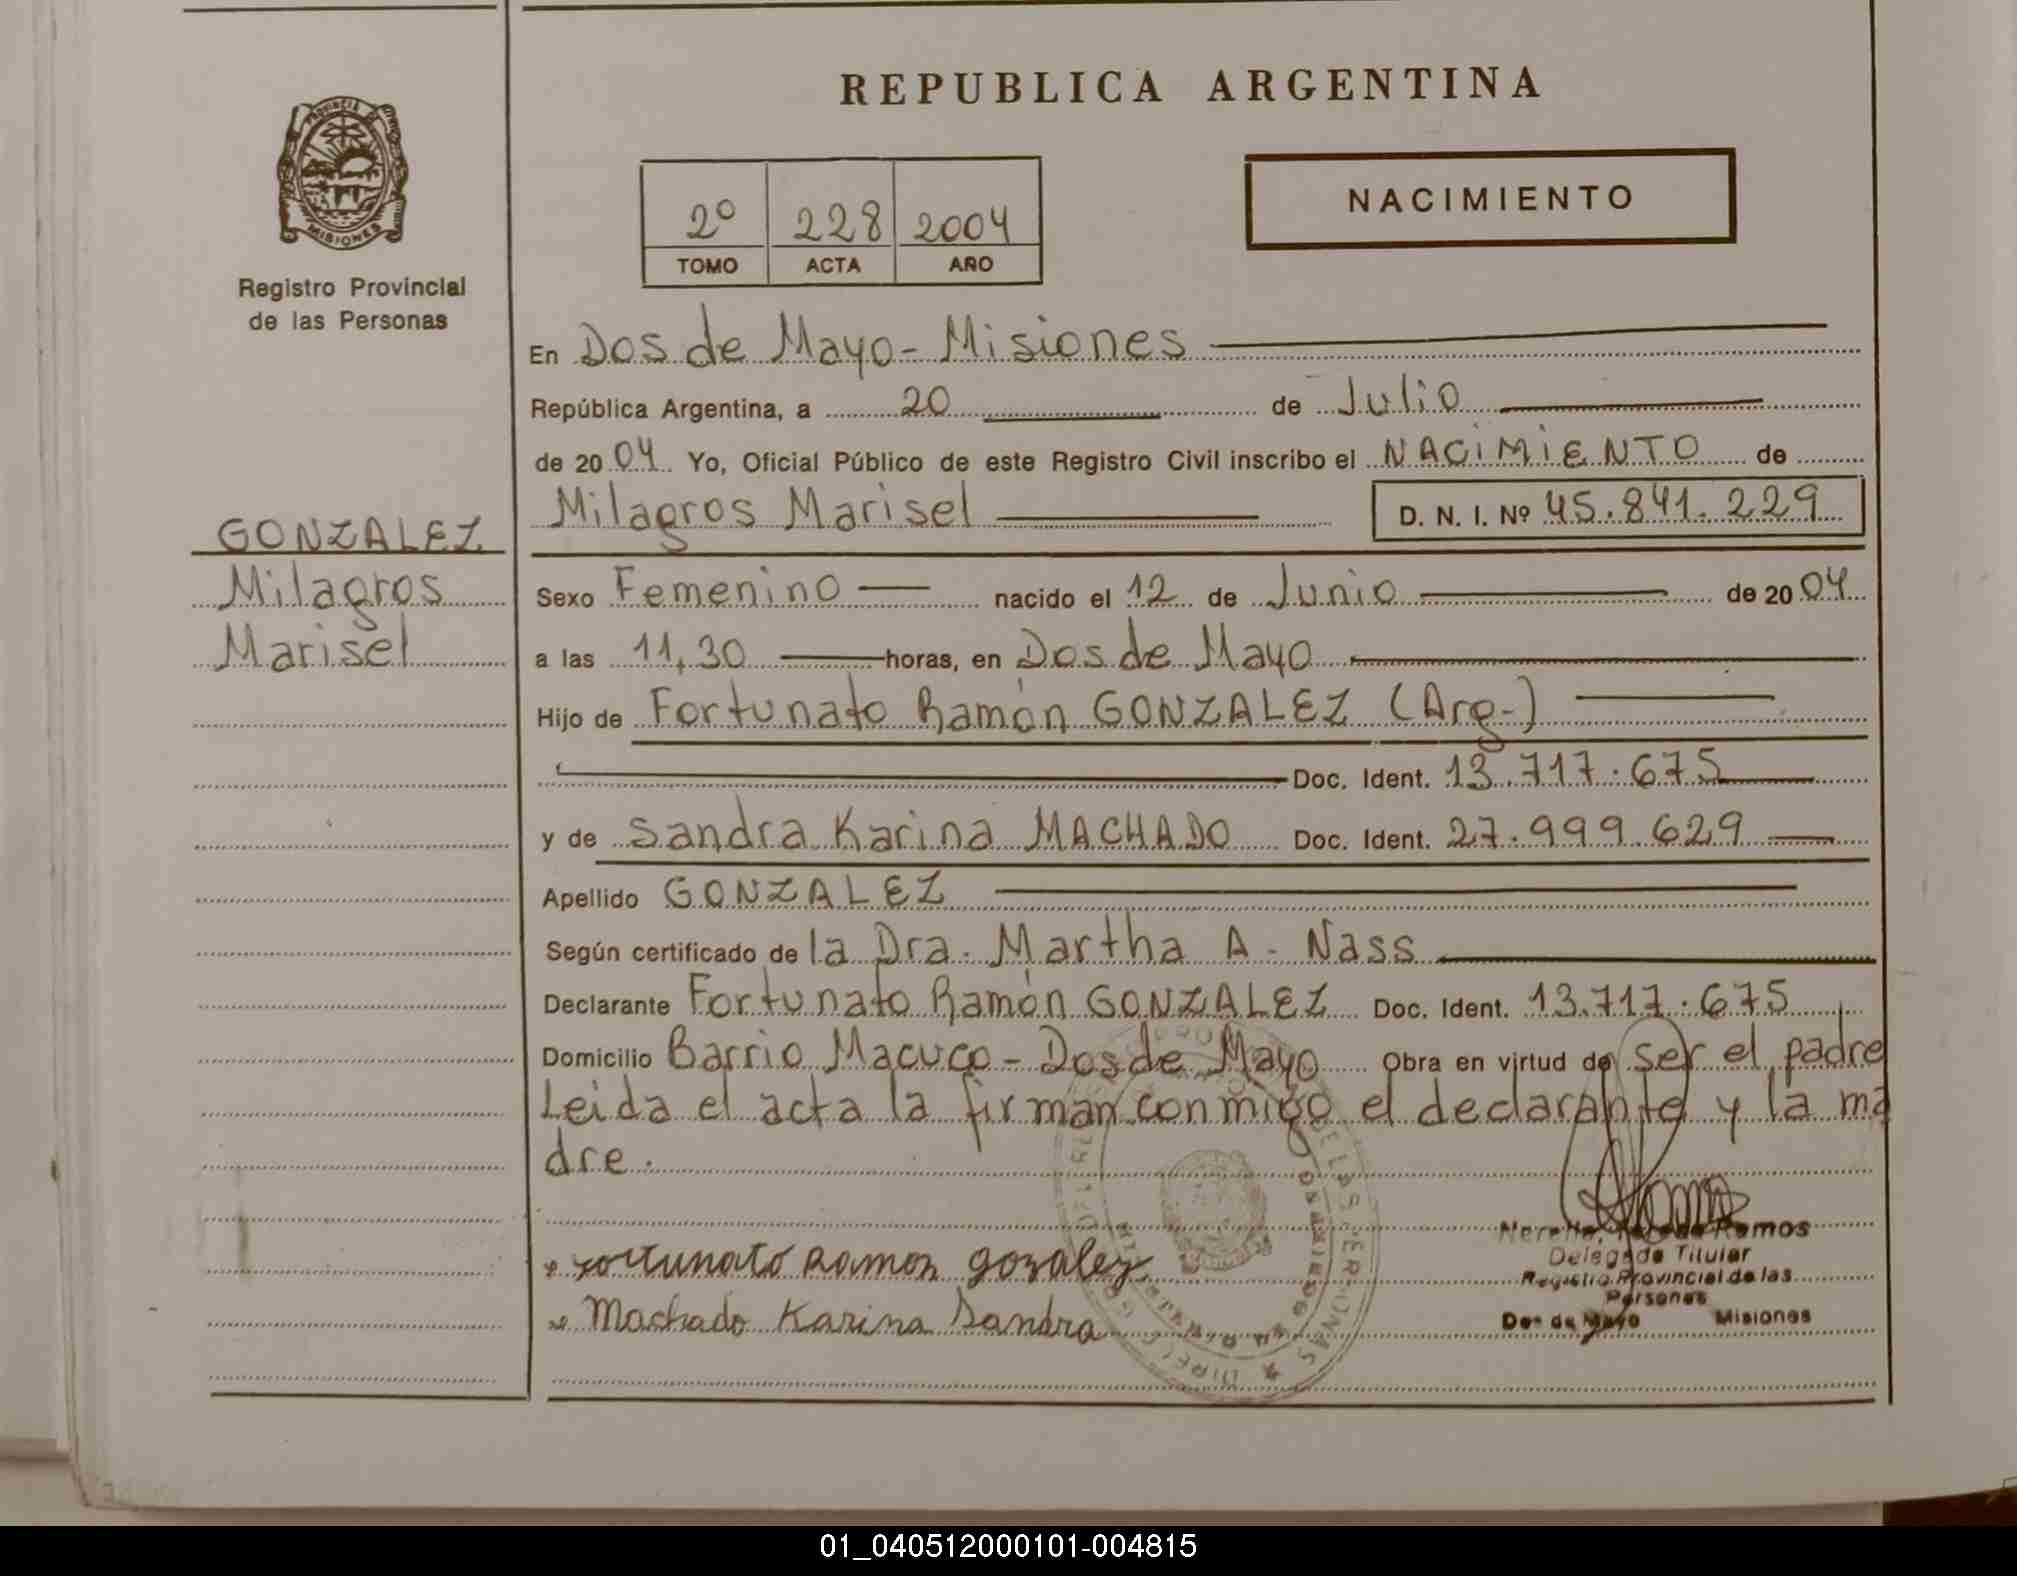 REPUBLICA ARGENTINA
PROVINCIA
MISIONES
Registro Provincial
de las Personas
2º 228 2004
TOMO ACTA AÑO
NACIMIENTO
En Dos de Mayo - Misiones
República Argentina, a 20 de Julio
de 2004 Yo, Oficial Público de este Registro Civil inscribo el NACIMIENTO de
Milagros Marisel D. N. I. Nº 45.841.229
GONZALEZ
Milagros
Marisel
Sexo Femenino nacido el 12 de Junio de 2004
a las 11,30 horas, en Dos de Mayo
Hijo de Fortunato Ramón GONZALEZ (Arg-)
Doc. Ident. 13.717.675
y de Sandra Karina MACHADO Doc. Ident. 27.999.629
Apellido GONZALEZ
Según certificado de la Dra. Martha A. Nass
Declarante Fortunato Ramón GONZALEZ Doc. Ident. 13.717.675
Domicilio Barrio Macuco - Dos de Mayo Obra en virtud de ser el padre
Leida el acta la firman conmigo el declarante y la ma
dre.
Fortunato Ramon gozalez
Machado Karina Sandra
Ramos
Delegada Titular
Registro Provincial de las
Personas
Dos de Mayo Misiones
01_040512000101-004815